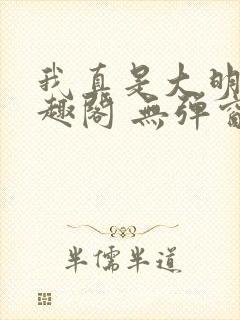 我真是大明
趣閣 無彈窗
半儒半道